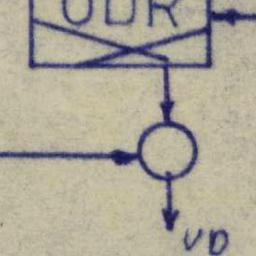 ODR
VD